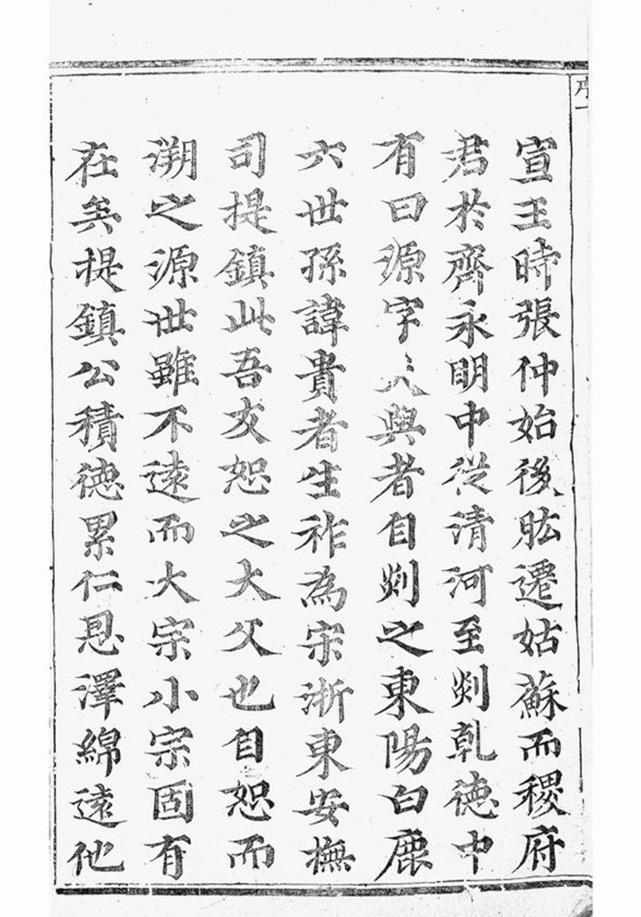 宣王時張仲始後肱遷姑蘇而稷府
君於齊永明中從清河至剡乾徳中
有曰源字與者自剡之東陽白鹿
六世孫諱貴者生祚為宋浙東安撫
司提鎮此吾友恕之大父也自恕而
溯之源世雖不遠而大宗小宗固有
在矣提鎮公積徳累仁恩澤綿遠他